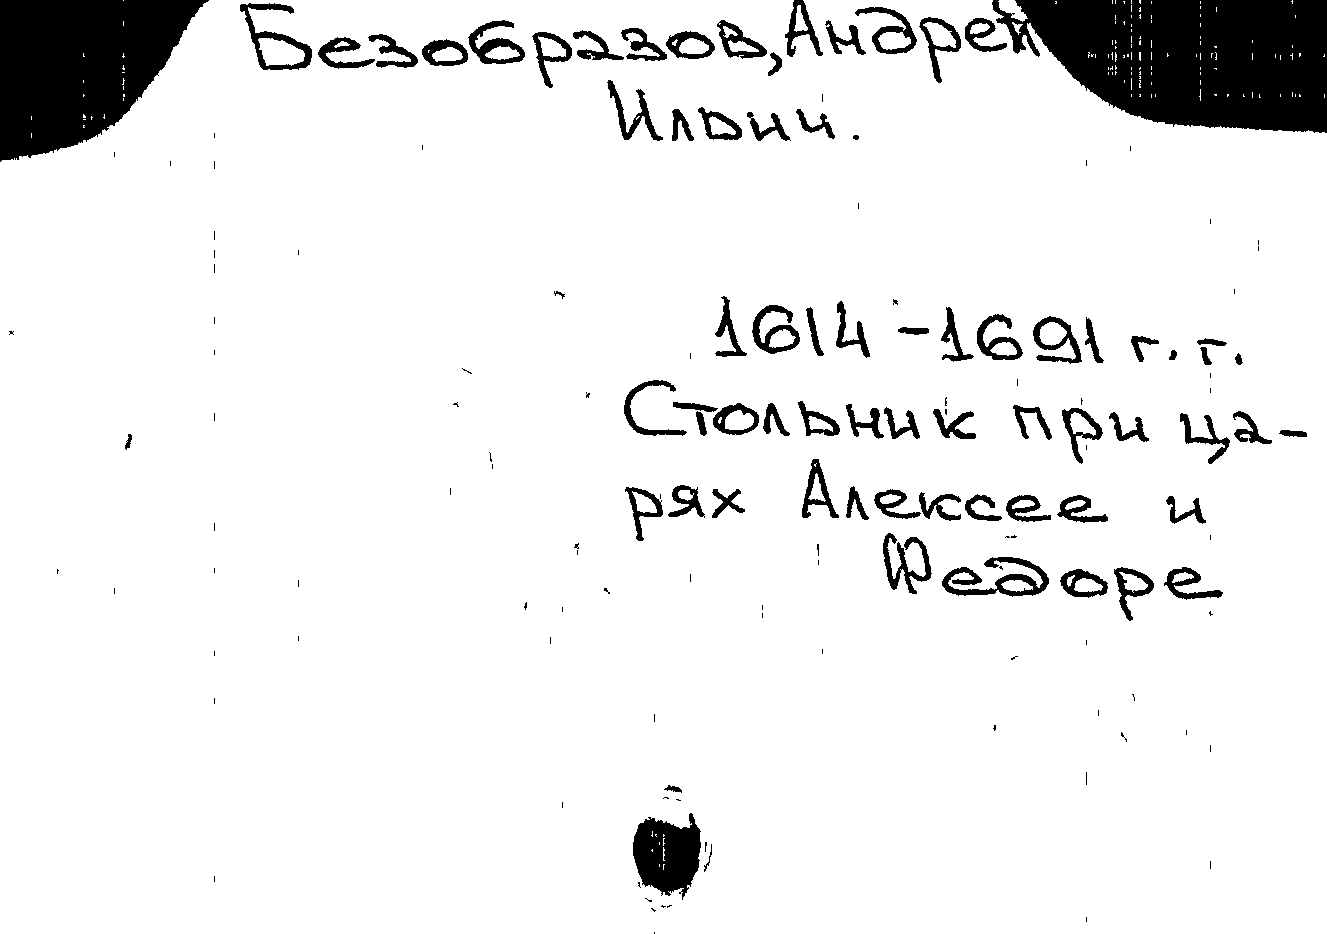 Безобразов, Андрей
Ильич.
1614-1691 г.г.
Стольник при ца-
рях Алексее и
Федоре